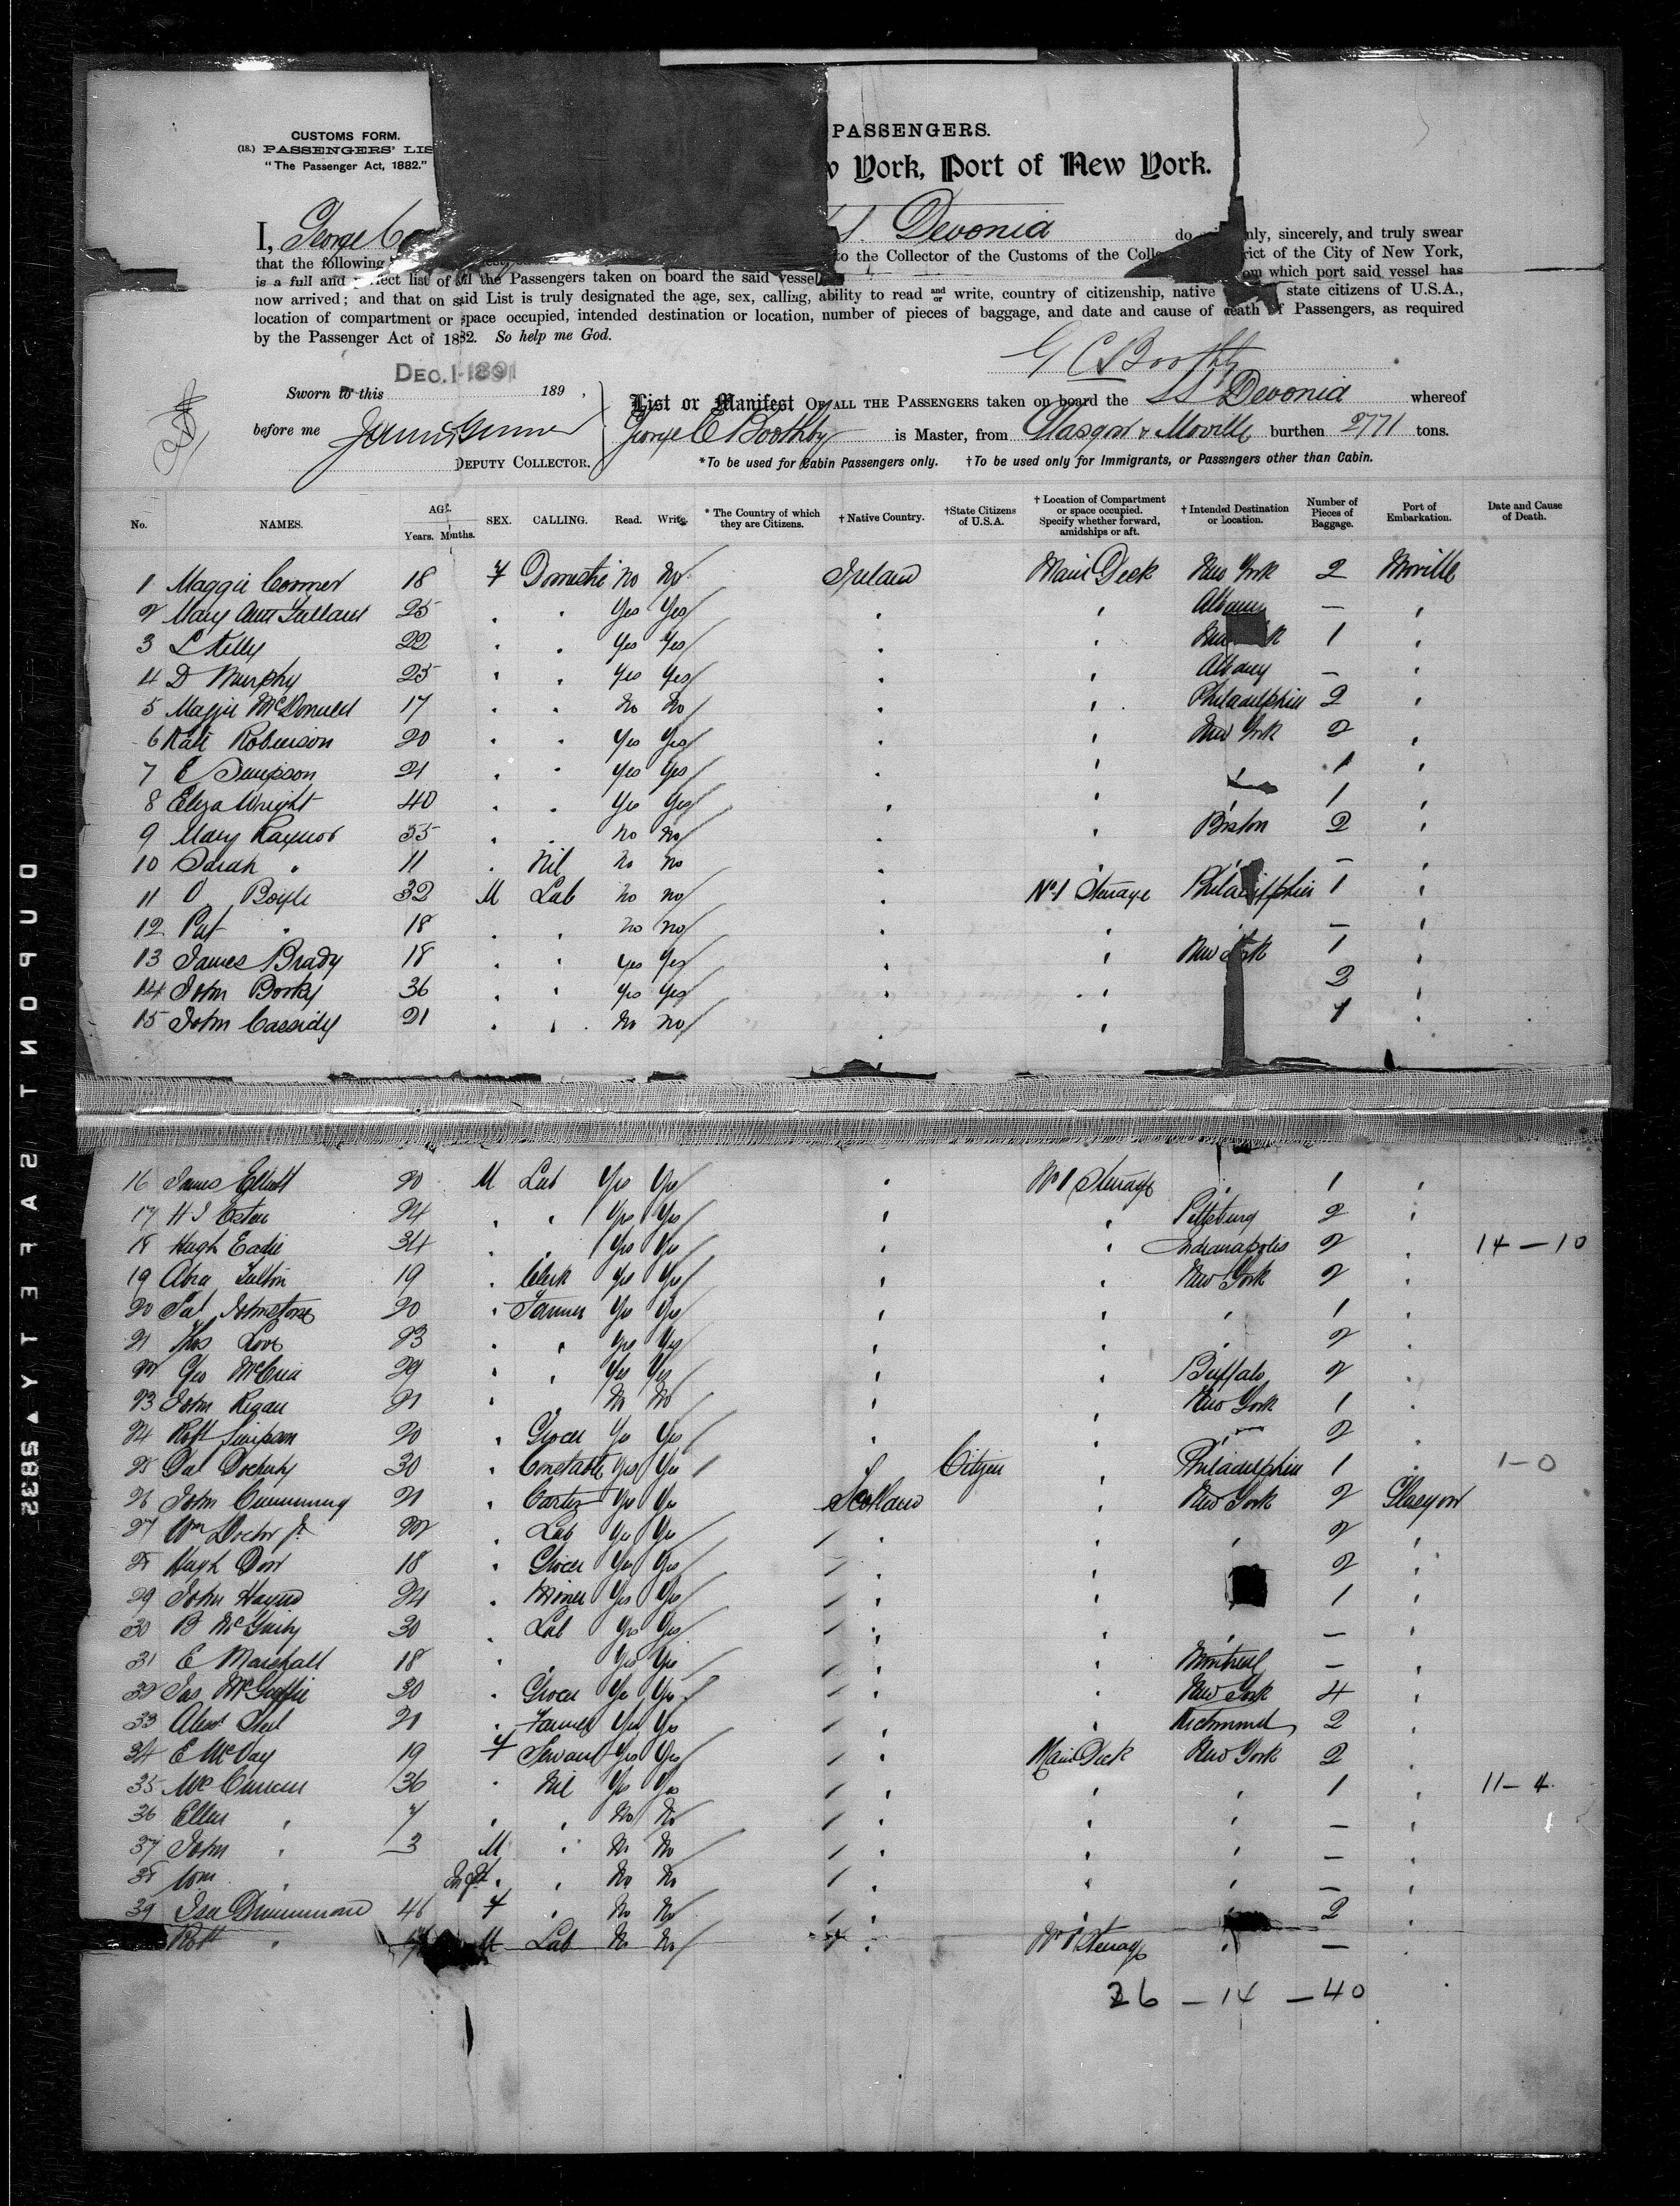 CUSTOMS FORM.
(18.) PASSENGERS' LIS
"The Passenger Act, 1882."
PASSENGERS.
w York, Port of New York.
I, George C S. Devonia do nly, sincerely, and truly swear
that the following to the Collector of the Customs of the Colle rict of the City of New York,
is a full and list of all the Passengers taken on board the said vessel om which port said vessel has
now arrived; and that on said List is truly designated the age, sex, calling, ability to read and or write, country of citizenship, native state citizens of U.S.A.,
location of compartment or space occupied, intended destination or location, number of pieces of baggage, and date and cause of death of Passengers, as required
by the Passenger Act of 1882. So help me God.
G C Boothby
DEC. 1-1891
Sworn to this 189 ,
List or Manifest OF ALL THE PASSENGERS taken on board the SS Devonia whereof
before me
George C Boothby is Master, from Glasgow & Moville burthen 2771 tons.
DEPUTY COLLECTOR.
*To be used for Cabin Passengers only. †To be used only for Immigrants, or Passengers other than Cabin.
No. NAMES. AGE. Years. Months. SEX. CALLING. Read. Write. * The Country of which they are Citizens. † Native Country. †State Citizens of U.S.A. † Location of Compartment or space occupied. Specify whether forward, amidships or aft. † Intended Destination or Location. Number of Pieces of Baggage. Port of Embarkation. Date and Cause of Death.
1 Maggie Connor 18 F Domestic No No Ireland Main Deck New York 2 Moville
2 Mary Ann 25 " " Yes Yes " " Albany — "
3 Kelly 22 " " Yes Yes " " New k 1 "
4 D Murphy 25 " " Yes Yes " " Albany — "
5 Maggie McDonald 17 " " No No " " Philadelphia 2 "
6 Kate Robinson 20 " " Yes Yes " " New York 2 "
7 E Simpson 21 " " Yes Yes " " " 1 "
8 Eliza Wright 40 " " Yes Yes " " " 1 "
9 Mary Raynor 55 " " No No " " Boston 2 "
10 Sarah " 11 " Nil No No " " " — "
11 Boyle 32 M Lab No No " No 1 Steerage Philadelphia 1 "
12 Pat " 18 " " No No " " — "
13 James Brady 18 " " Yes Yes " " New York 1 "
14 John 36 " " Yes Yes " " 2 "
15 John Cassidy 21 " " No No " " 1 "
16 James Elliott 20 M Lab Yes Yes " No 1 Steerage " 1 "
17 H J 24 " " Yes Yes " " Pittsburg 2 "
18 Hugh Eadie 34 " " Yes Yes " " Indianapolis 2 " 14 — 10
19 Fulton 19 " Clerk Yes Yes " " New York 2 "
20 Johnstone 20 " Farmer Yes Yes " " " 1 "
21 Thos Love 23 " " Yes Yes " " " 2 "
22 Geo McCrea 29 " " Yes Yes " " Buffalo 2 "
23 John Regan 21 " " No No " " New York 1 "
24 Robt Simpson 20 " Grocer Yes Yes " " " 2 "
25 Docherty 30 " Constable Yes Yes " Citizen " Philadelphia 1 " 1—0
26 John Cumming 21 " Carter Yes Yes Scotland " New York 2 Glasgow
27 Wm Doctor Jr 22 " Lab Yes Yes " " " 2 "
28 Hugh 18 " Grocer Yes Yes " " 2 "
29 John 24 " Miner Yes Yes " " 1 "
30 B 30 " Lab Yes Yes " " " — "
31 E Marshall 18 " " Yes Yes " " Montreal — "
32 Jas McGuffie 30 " Grocer Yes Yes " " New York 4 "
33 Alexr Steel 21 " Farmer Yes Yes " " Richmond 2 "
34 E McVay 19 F Servant Yes Yes " Main Deck New York 2 "
35 36 " Nil Yes Yes " " " 1 " 11—4
36 Ellen " 7 " " No No " " " — "
37 John " 3 M " No No " " " — "
38 Wm " Inft " " No No " " " — "
39 Drummond 46 F " No No " " 2 "
Robt " M Lab No No " No 1 Steerage " — "
26 — 14 — 40
DUPONT SAFETY ▲ 5385